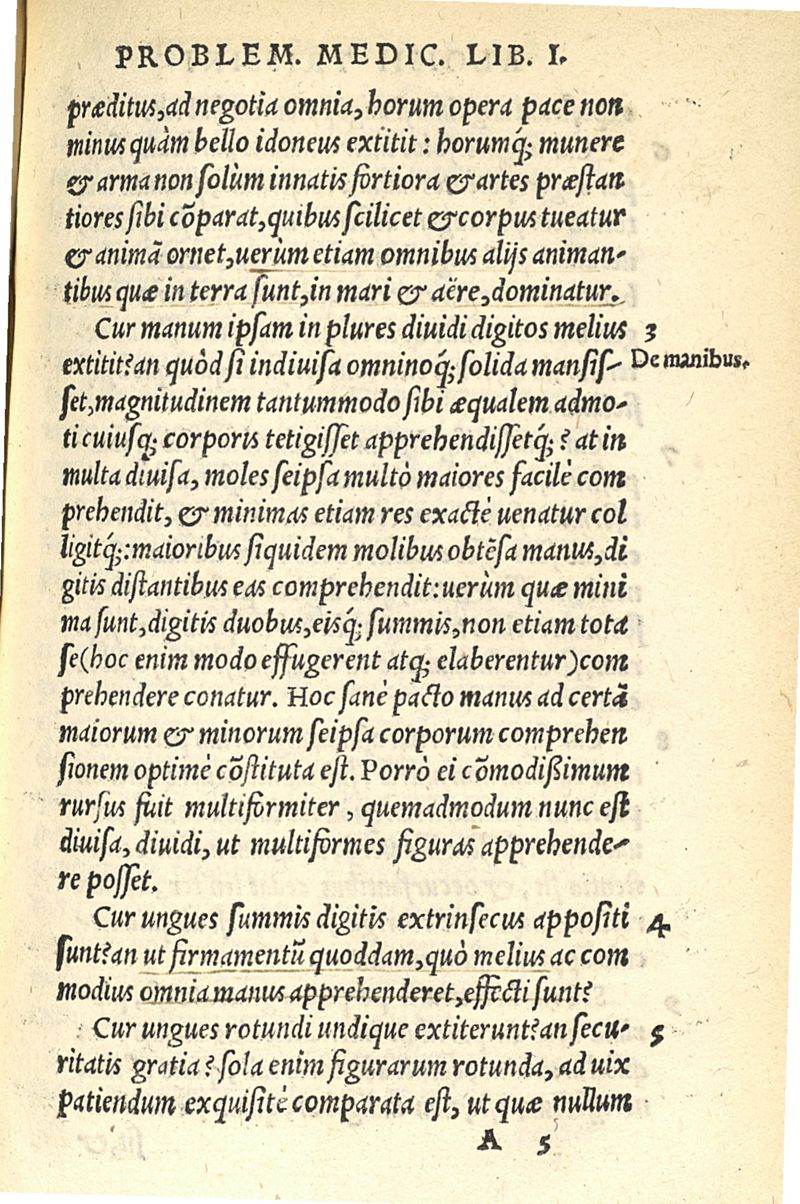 PROBLEM. MEDIC. LIB. I.
præditus, ad negotia omnia, horum opera pace non
minus quàm bello idoneus extitit: horumq́; munere
& arma non solùm innatis fortiora & artes præstan
tiores sibi cõparat, quibus scilicet & corpus tueatur
& animã ornet, uerùm etiam omnibus alijs animan-
tibus quæ in terra sunt, in mari & aëre, dominatur.
Cur manum ipsam in plures diuidi digitos melius 3
extitit? an quòd si indiuisa omninoq́; solida mansis- De manibus.
set, magnitudinem tantummodo sibi æqualem admo-
ti cuiusq; corporis tetigisset apprehendissetq́;? at in
multa diuisa, moles seipsa multò maiores facilè com
prehendit, & minimas etiam res exactè uenatur col
ligitq́;: maioribus siquidem molibus obtẽsa manus, di
gitis distantibus eas comprehendit: uerùm quæ mini
ma sunt, digitis duobus, eisq́; summis, non etiam tota
se (hoc enim modo effugerent atq; elaberentur) com
prehendere conatur. Hoc sanè pacto manus ad certã
maiorum & minorum seipsa corporum comprehen
sionem optimè cõstituta est. Porrò ei cõmodißimum
rursus fuit multiformiter, quemadmodum nunc est
diuisa, diuidi, ut multiformes figuras apprehende-
re posset.
Cur ungues summis digitis extrinsecus appositi 4
sunt? an ut firmamentũ quoddam, quò melius ac com
modius omnia manus apprehenderet, effecti sunt?
Cur ungues rotundi undique extiterunt? an secu- 5
ritatis gratia? sola enim figurarum rotunda, ad uix
patiendum exquisitè comparata est, ut quæ nullum
A 5